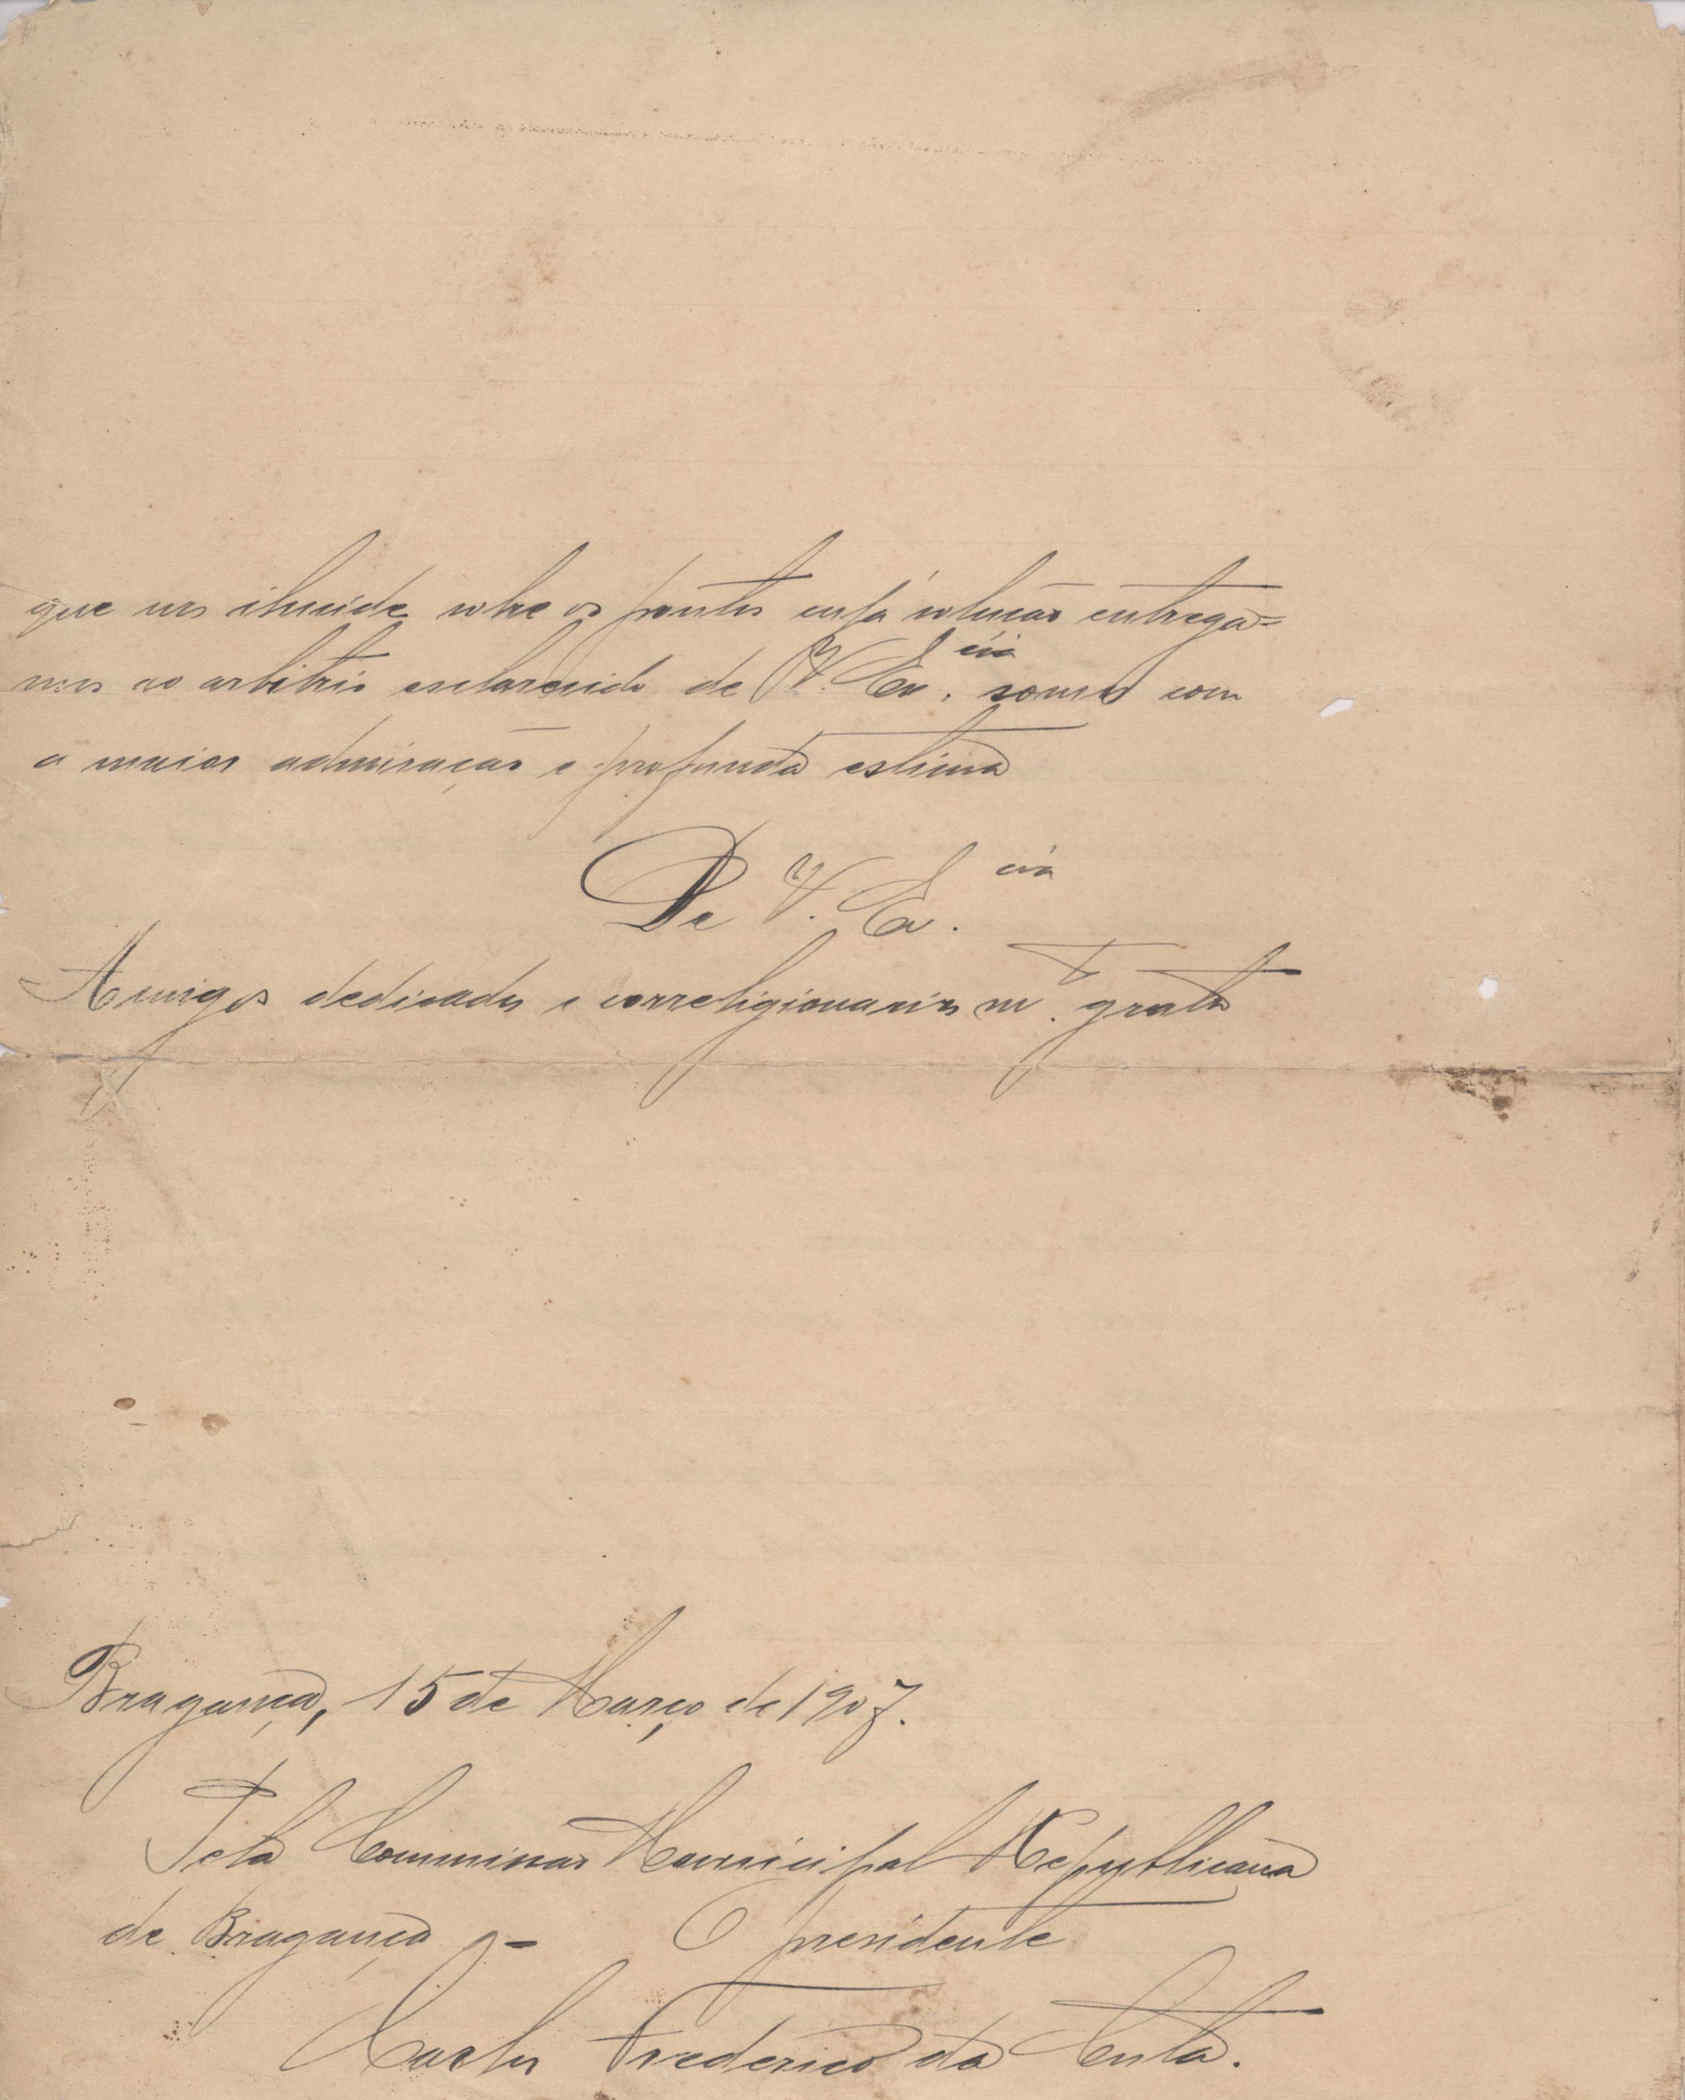 que nos elucide sobre os pontos cuja solução entrega=
mos ao arbitrio esclarecido de V. Ex.cia somos com
a maior admiração e profunda estima
De V. Ex.cia
Amigos dedicados e correligionarios m.to gratos
Bragança, 15 de Março de 1907.
Pela Commissão Municipal Republicana
de Bragança, - O presidente
Carlos Frederico da Costa.